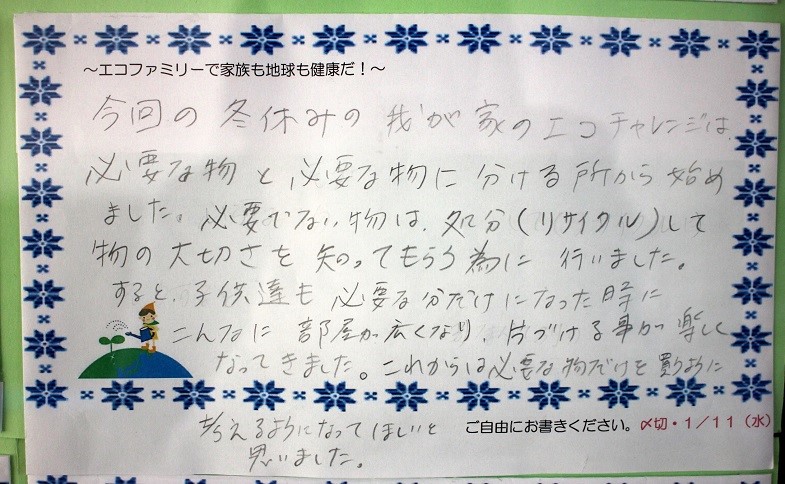 ～エコファミリーで家族も地球も健康だ！～
今回の冬休みの我が家のエコチャレンジは、
必要な物と必要な物に分ける所から始め
ました。必要でない物は、処分(リサイクル)して
物の大切さを知ってもらう為に行いました。
すると、子供達も必要な分だけになった時に
こんなに部屋が広くなり、片づける事が楽しく
なってきました。これからは必要な物だけを買うように
考えるようになってほしいと
思いました。
ご自由にお書きください。〆切・1／11（水）